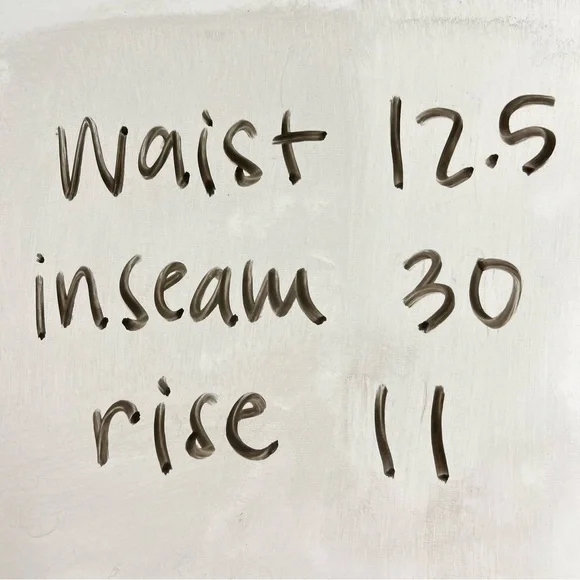 Waist 12.5
inseam 30
rise 11